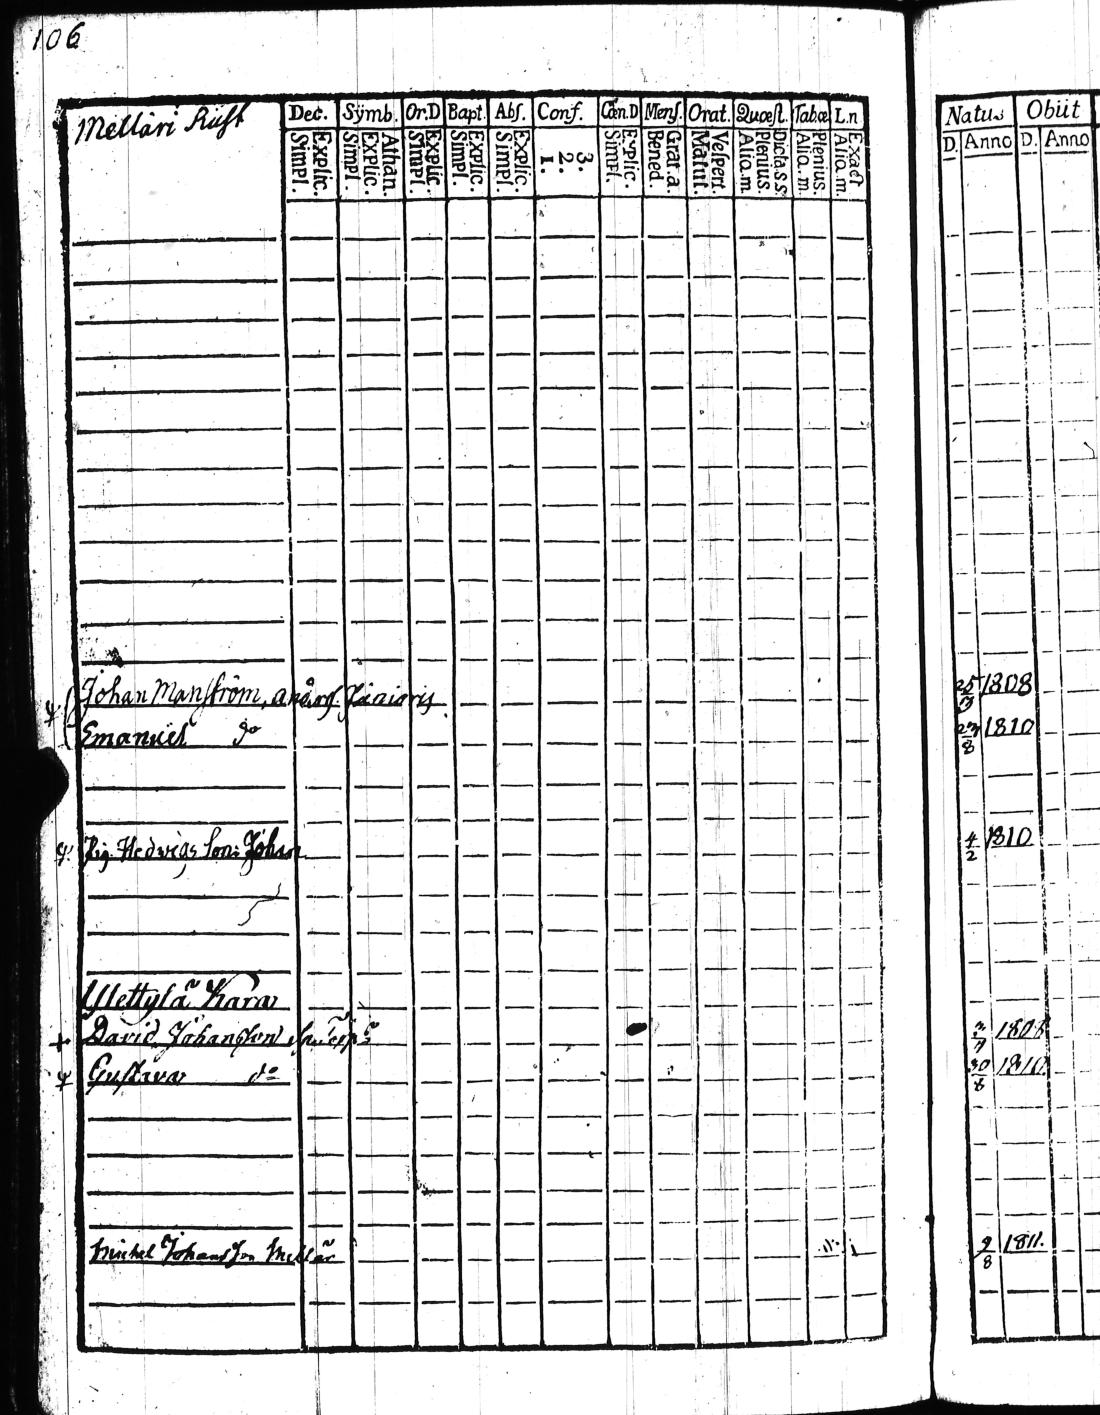 106
Mellari Rust
Dec. Sÿmb. Or.D Bapt. Abs. Conf. Cœn.D Mens. Orat. Quæst. Tabæ L.n
Simpl. Explic. Simpl. Explic. Athan. Simpl. Explic. Simpl. Explic. Simpl. Explic. 1. 2. 3. Simpl. Explic. Bened. Grat.a Matut. Vespert. Alio.m Plenius. Dicta.s.s. Alio.m. Plenius. Alio.m. Exact
Natus Obiit
D. Anno D. Anno
Johan Manström, 25 1808
Emanuel do 8 1810
Hedvigs Son: Johan 4/2 1810
David Johansson 180
Gustava do 30/8 1810
Michel Johansson Mellar 9/8 1811.